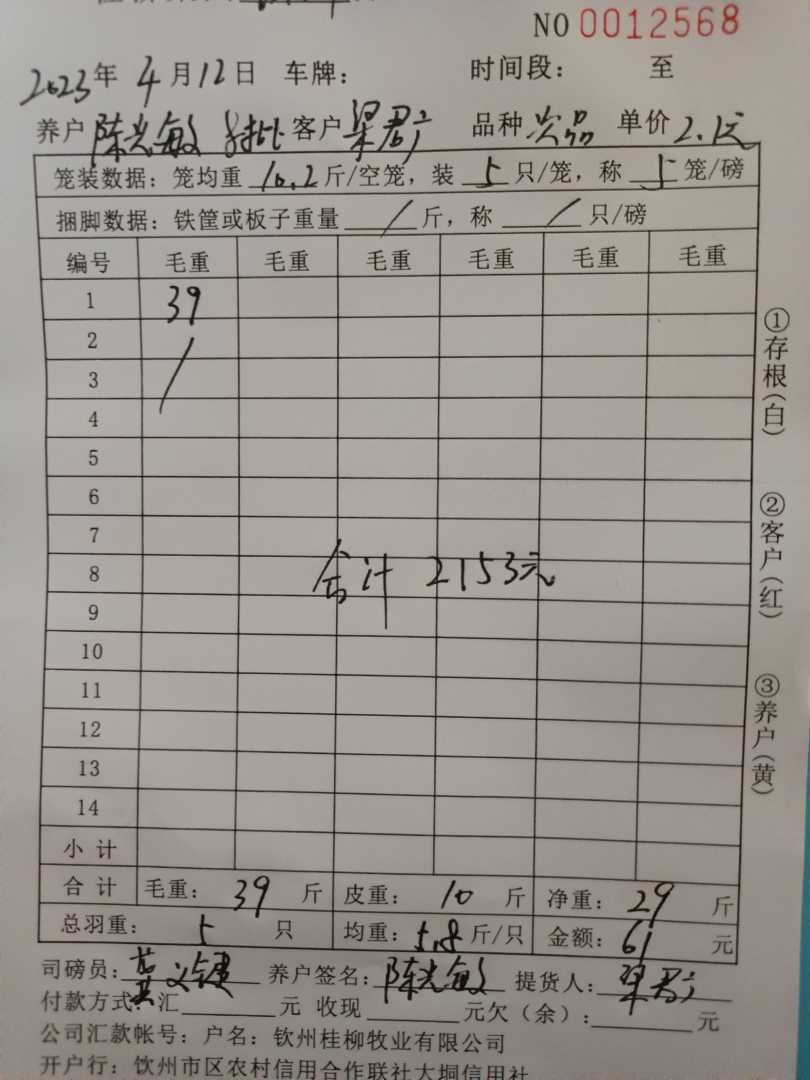 NO 0012568
2023年 4月12日 车牌： 时间段： 至
养户 陈光敏 客户 梁君广 品种 次品 单价 2.1元
笼装数据：笼均重 10.2 斤/空笼，装 5 只/笼，称 5 笼/磅
捆脚数据：铁筐或板子重量 / 斤，称 / 只/磅
编号 毛重 毛重 毛重 毛重 毛重 毛重
1 39
2 /
3
4
5
6
7
8
合计 2153元
9
10
11
12
13
14
小计
合计 毛重： 39 斤 皮重： 10 斤 净重： 29 斤
总羽重： 5 只 均重： 5.8 斤/只 金额： 61 元
司磅员： 养户签名： 陈光敏 提货人： 梁君广
付款方式：汇 元 收现 元欠（余）： 元
公司汇款帐号：户名：钦州桂柳牧业有限公司
开户行：钦州市区农村信用合作联社大垌信用社
①存根（白）
②客户（红）
③养户（黄）